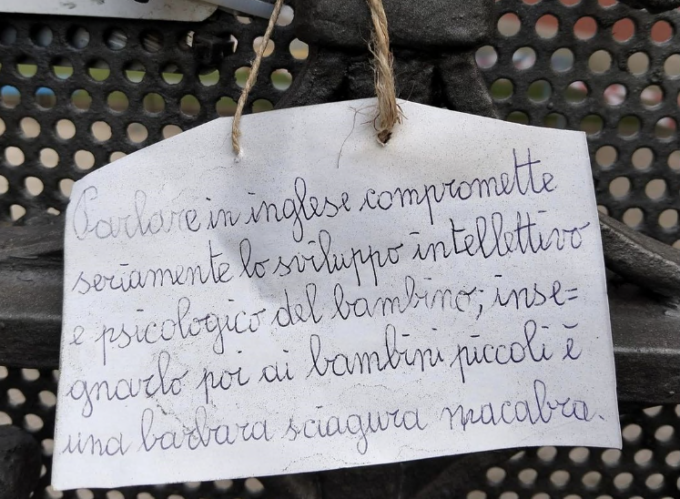 Parlare in inglese compromette
seriamente lo sviluppo intellettivo
e psicologico del bambino; inse=
gnarlo poi ai bambini piccoli è
una barbara sciagura macabra.